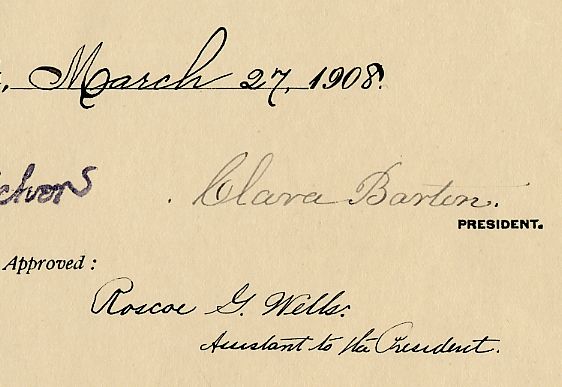 March 27, 1908.
Clara Barton.
PRESIDENT.
Approved:
Roscoe G. Wells.
Assistant to the President.